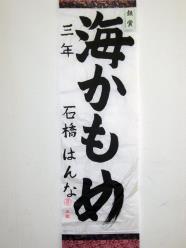 銀賞
海かもめ
三年
石橋はんな